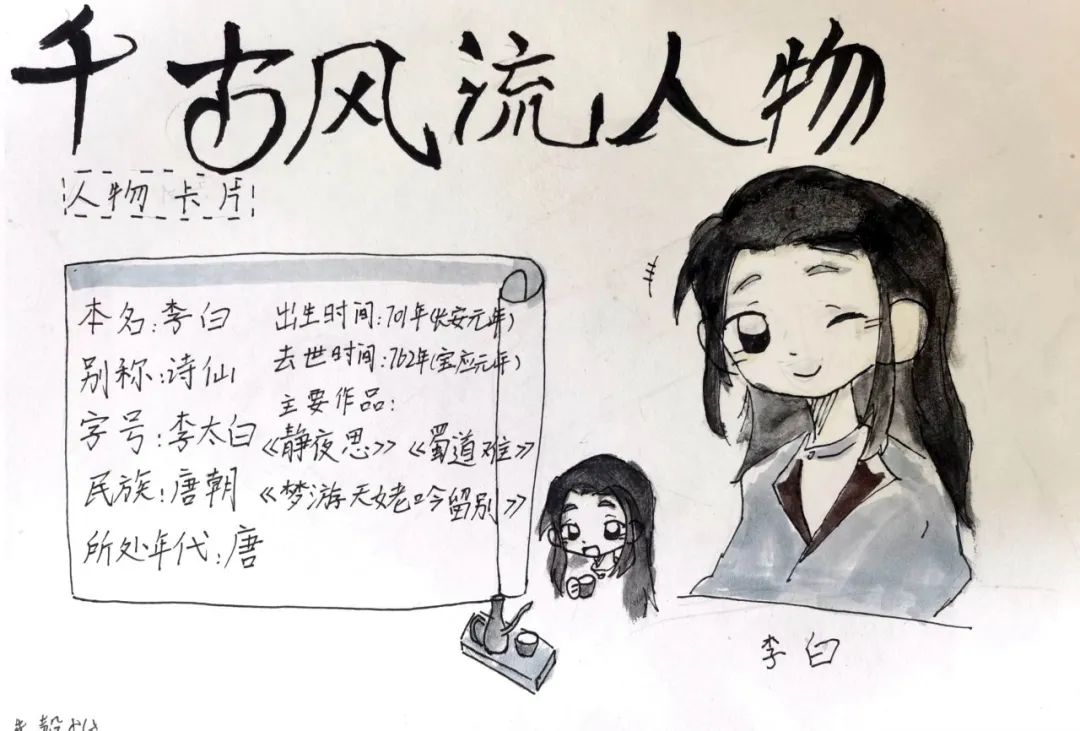 千古风流人物
人物卡片
本名:李白
别称:诗仙
字号:李太白
民族:唐朝
所处年代:唐
出生时间:701年(长安元年)
去世时间:762年(宝应元年)
主要作品:
《静夜思》《蜀道难》
《梦游天姥吟留别》
李白